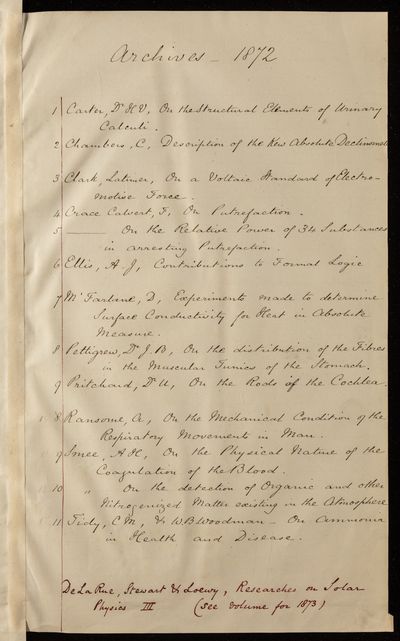 Archives - 1872
1 Carter, Dr H.V, On the Structural Elements of Urinary
Calculi.
2 Chambers, C, Description of the Kew Absolute Declinomet
3 Clark, Latimer, On a Voltaic Standard of Electro-
motive Force.
4 Crace Calvert, F, On Putrefaction.
5 —— On the Relative Power of 34 Substances
in arresting Putrefaction.
6 Ellis, A.J, Contributions to Formal Logic
7 McFarlane, D, Experiments made to determine
Surface Conductivity for Heat in Absolute
Measure.
8 Pettigrew, Dr J.B, On the distribution of the Fibres
in the Muscular Tunics of the Stomach.
9 Pritchard, Dr U, On the Rods of the Cochlea.
8 Ransome, A, On the Mechanical Condition of the
Respiratory Movements in Man.
9 Smee, A H, On the Physical Nature of the
Coagulation of the Blood.
10 " On the detection of Organic and other
Nitrogenized Matter existing in the Atmosphere
11 Tidy, C M, & W.B Woodman - On Ammonia
in Health and Disease.
De La Rue, Stewart & Loewy, Researches on Solar
Physics III (see volume for 1873)